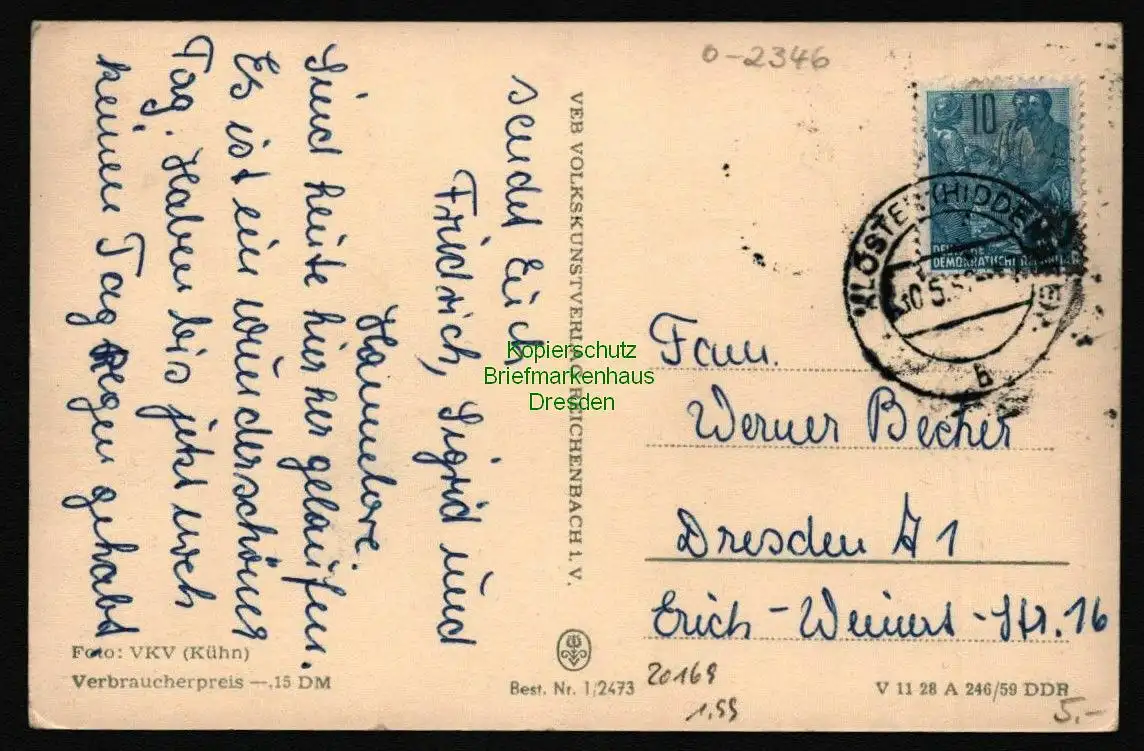 0-2346
sendet Euch
Friedrich, Sigrid und
Hannelore.
Sind heute hierher gelaufen.
Es ist ein wunderschöner
Tag. Haben bis jetzt noch
keinen Tag Regen gehabt
VEB VOLKSKUNSTVERLAG REICHENBACH I. V.
10
DEUTSCHE
DEMOKRATISCHE REPUBLIK
KLOSTER (HIDDENSEE)
10.5.
b
Kopierschutz
Briefmarkenhaus
Dresden
Fam.
Werner Becher
Dresden A 1
Erich-Weinert-Str. 16
Foto: VKV (Kühn)
Verbraucherpreis —,15 DM
Best. Nr. 1/2473
20169
1,99
V 11 28 A 246/59 DDR
5.-